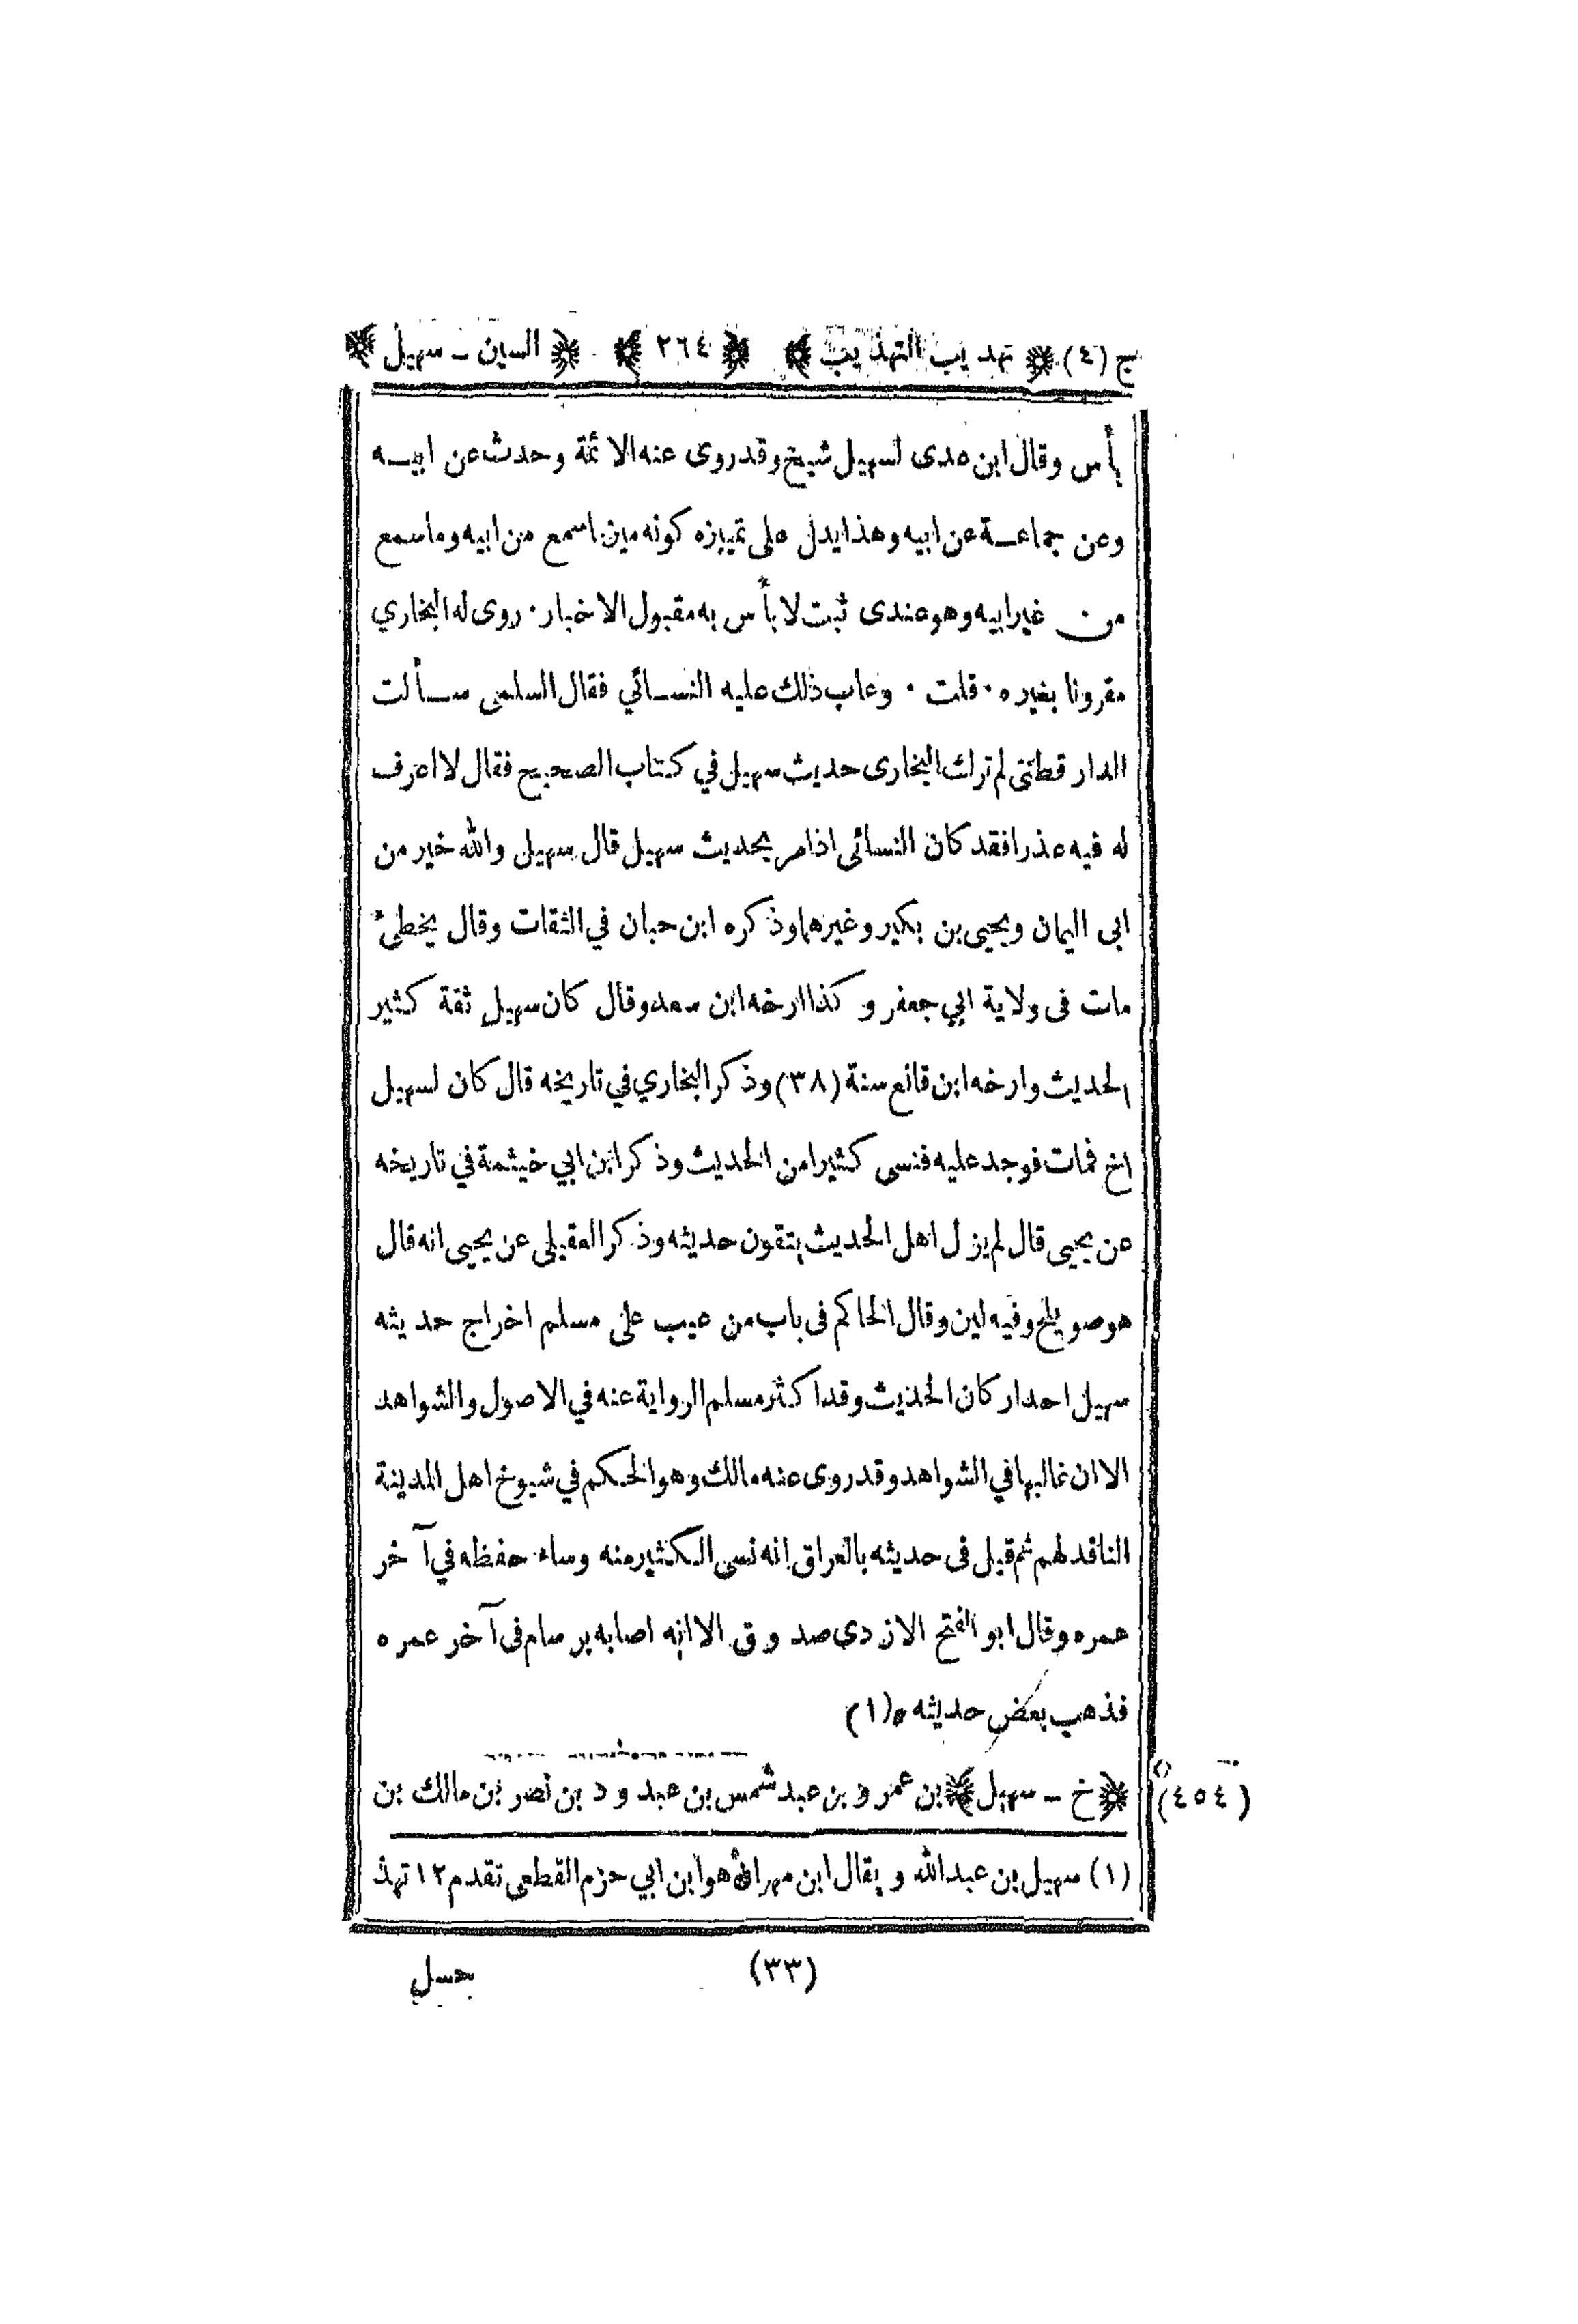 ج (٤) تهذيب التهذيب ٢٦٤ السين ـ سهيل
بأس وقال ابن عدى لسهيل شيخ وقد روى عنه الائمة وحدث عن ابيـه
وعن جماعـة عن ابيه وهذا يدل على تمييزه كونه ميز ما سمع من ابيه وما سمع
من غير ابيه وهو عندى ثبت لا بأس به مقبول الاخبار ٠ روى له البخاري
مقرونا بغيره ٠ قلت ٠ وعاب ذلك عليه النسائي فقال السلمى سألت
الدار قطنى لم ترك البخارى حديث سهيل في كتاب الصحيح فقال لا اعرف
له فيه عذرا فقد كان النسائى اذا مر بحديث سهيل قال سهيل والله خير من
ابى اليمان ويحيى بن بكير وغيرهما وذكره ابن حبان في الثقات وقال يخطئ
مات فى ولاية ابي جعفر وكذا ارخه ابن سعد وقال كان سهيل ثقة كثير
الحديث وارخه ابن قانع سنة (٣٨) وذكر البخاري في تاريخه قال كان لسهيل
اخ فمات فوجد عليه فنسى كثيرا من الحديث وذكر ابن ابي خيثمة في تاريخه
عن يحيى قال لم يزل اهل الحديث يتقون حديثه وذكر العقيلى عن يحيى انه قال
هو صويلح وفيه لين وقال الحاكم فى باب من عيب على مسلم اخراج حديثه
سهيل احد اركان الحديث وقد اكثر مسلم الرواية عنه في الاصول والشواهد
الا ان غالبها في الشواهد وقد روى عنه مالك وهو الحكم في شيوخ اهل المدينة
الناقد لهم ثم قيل فى حديثه بالعراق انه نسى الكثير منه وساء حفظه في آخر
عمره وقال ابو الفتح الازدى صدوق الا انه اصابه برسام فى آخر عمره
فذهب بعض حديثه (١)
(٤٥٤) خ ـ سهيل بن عمرو بن عبد شمس بن عبد ود بن نصر بن مالك بن
(١) سهيل بن عبدالله ويقال ابن مهران هو ابن ابي حزم القطعى تقدم ١٢ تهذ
(٣٣) حسل